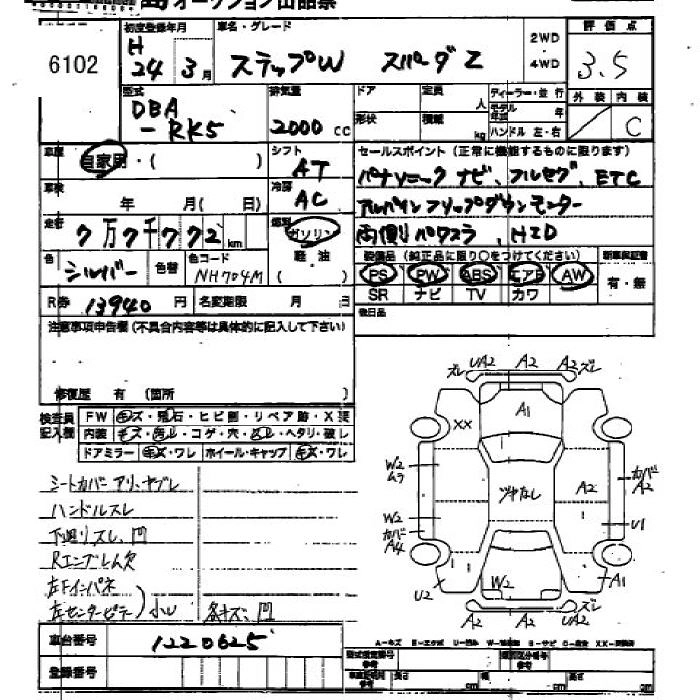 オークション出品票
6102
初度登録年月
H
24 3月
車名・グレード
ステップW スパーダZ
2WD
・
4WD
評価点
3.5
外装 内検
C
型式
DBA
-RK5
排気量
2000 cc
ドア 定員 人
形状 積載 kg
ディーラー・並行
モデル年式 年
ハンドル 左・右
車歴
自家用・( )
シフト
AT
セールスポイント(正常に機能するものに限ります)
パナソニックナビ、フルセグ、ETC
アルパインフリップダウンモニター
両側パワスラ、HID
車検
年 月(日)
冷房
AC
走行
7万7千772 km
燃料
ガソリン
・
軽油
色
シルバー
色替
色コード
NH704M
装備品(純正品に限り○をつけてください)
PS PW ABS エアB AW
SR ナビ TV カワ
新車保証書
有・無
R券 13940円
名変期限 月 日
後日品
注意事項申告欄(不具合内容等は具体的に記入して下さい)
修復歴 有(箇所 )
検査員
記入欄
FW キズ・飛石・ヒビ割・リペア跡・X要
内装 キズ・汚レ・コゲ・穴・スレ・ヘタリ・破レ
ドアミラー キズ・ワレ ホイール・キャップ キズ・ワレ
シートカバーアリ、ヤブレ
ハンドルスレ
下廻リズレ、凹
Rエンブレム欠
左Fインパネ
左センターピラー)小U
各キズ、凹
ズレ UA2 A2 A2 ズレ
A1
XX
W2
ムラ
カバー
A2
ヅヤなし
A2
W2
カバー
A4
U1
U2
W2
A1
A2 A2 UA2 ズレ
車台番号 1220625
登録番号
A-キズ E-エクボ
型式指定番号
参考
類別区分番号
参考
長さ cm 幅 cm 高さ cm